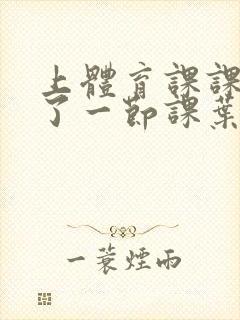 上體育課課
了一節課葉
一蓑煙雨